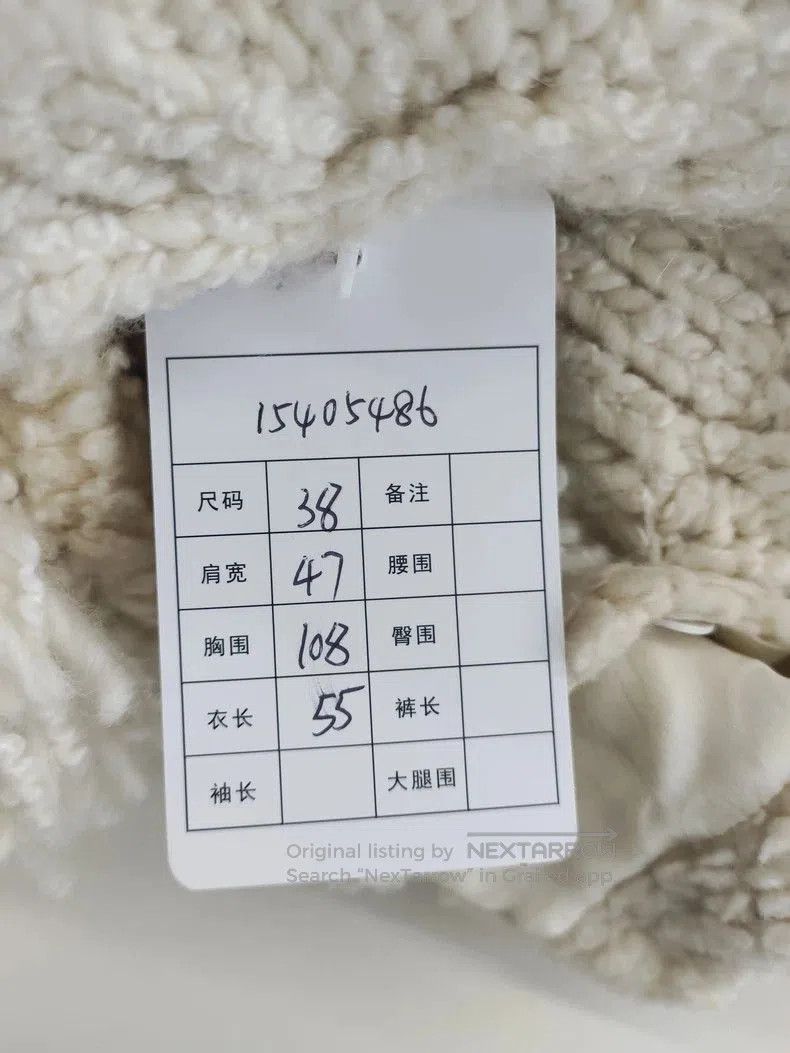 15405486
尺码 38 备注
肩宽 47 腰围
胸围 108 臀围
衣长 55 裤长
袖长 大腿围
Original listing by NEXTARROW
Search "NexTarrow" in Grailed app